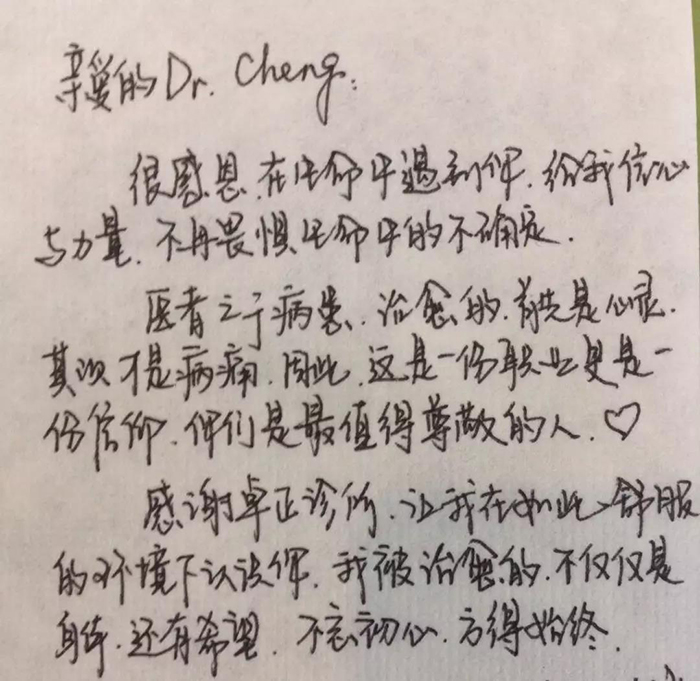 亲爱的Dr. Cheng:
很感恩,在生命中遇到你,给我信心
与力量,不再畏惧生命中的不确定.
医者之于病患,治愈的,首先是心灵,
其次才是病痛,因此,这是一份职业更是一
份信仰,你们是最值得尊敬的人.♡
感谢卓正诊所,让我在如此舒服
的环境下认识你,我被治愈的,不仅仅是
身体,还有希望,不忘初心,方得始终.